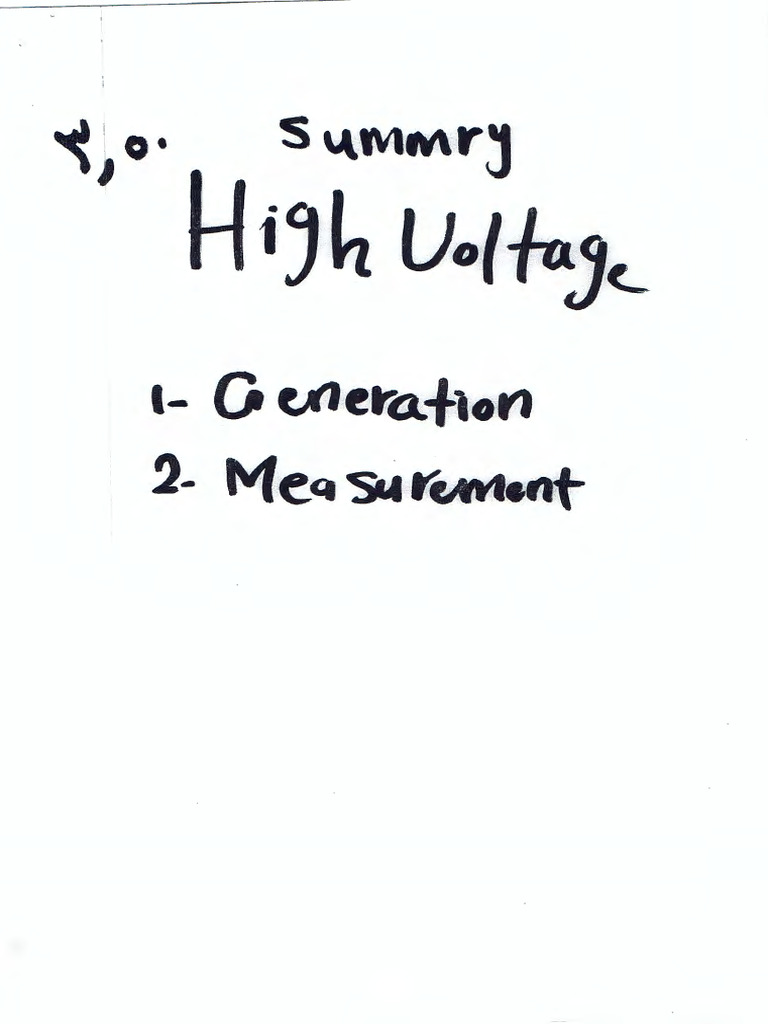 ٣,٥٠
summry
High Voltage
1- Generation
2- Measurement